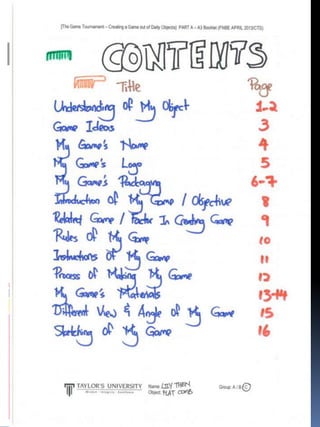 [The Game Tournament – Creating a Game out of Daily Objects] PART A – A3 Booklet (FNBE APRIL 2013/CTS)
CONTENTS
Title Page
Understanding Of My Object 1-2
Game Ideas 3
My Game's Name 4
My Game's Logo 5
My Game's Packaging 6-7
Introduction Of My Game / Objective 8
Related Game / Factor In Creating Game 9
Rules Of My Game 10
Instructions Of My Game 11
Process Of Making My Game 12
My Game's Materials 13-14
Different View & Angle Of My Game 15
Sketching Of My Game 16
TAYLOR'S UNIVERSITY Name: LIIY THEN Group: A / B / C
Wisdom · Integrity · Excellence Object: FLAT COMB